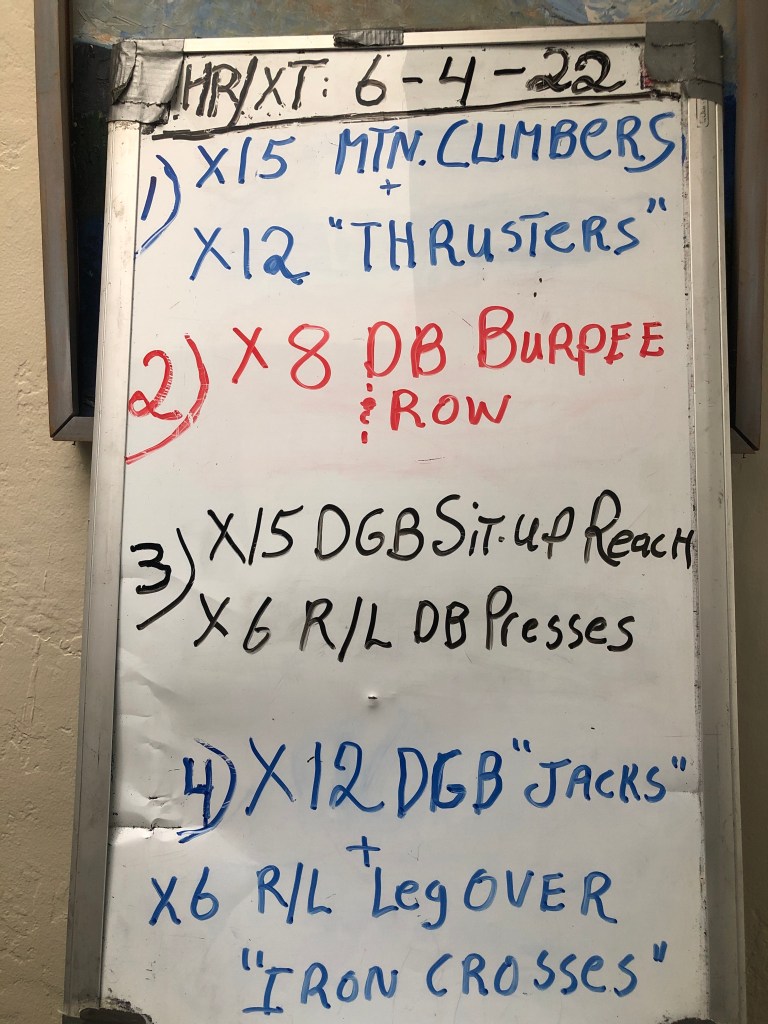 HR/XT: 6-4-22
1) X15 MTN. CLIMBERS
+
X12 "THRUSTERS"
2) X 8 DB BURPEE
& ROW
3) X15 DGB Sit-up Reach
X 6 R/L DB Presses
4) X12 DGB "JACKS"
+
X6 R/L Leg OVER
"IRON CROSSes"